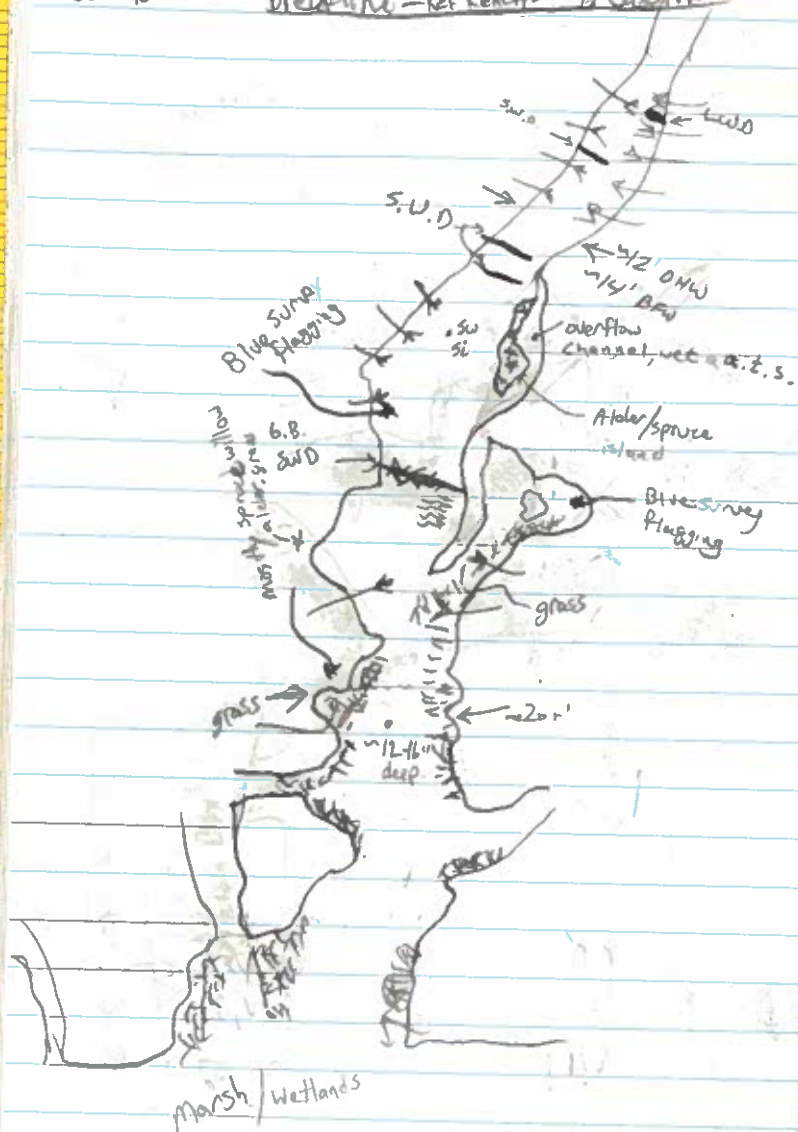 L.W.D
S.W.D
S.W.D
~12' OHW
~14' BFW
Blue Survey
flagging
.SW
Si
overflow
channel, wet @ a.t.s.
Alder/spruce
island
G.B.
SWD
mostly spruce
Blue Survey
flagging
grass
grass
~12-16"
deep
Marsh / Wetlands